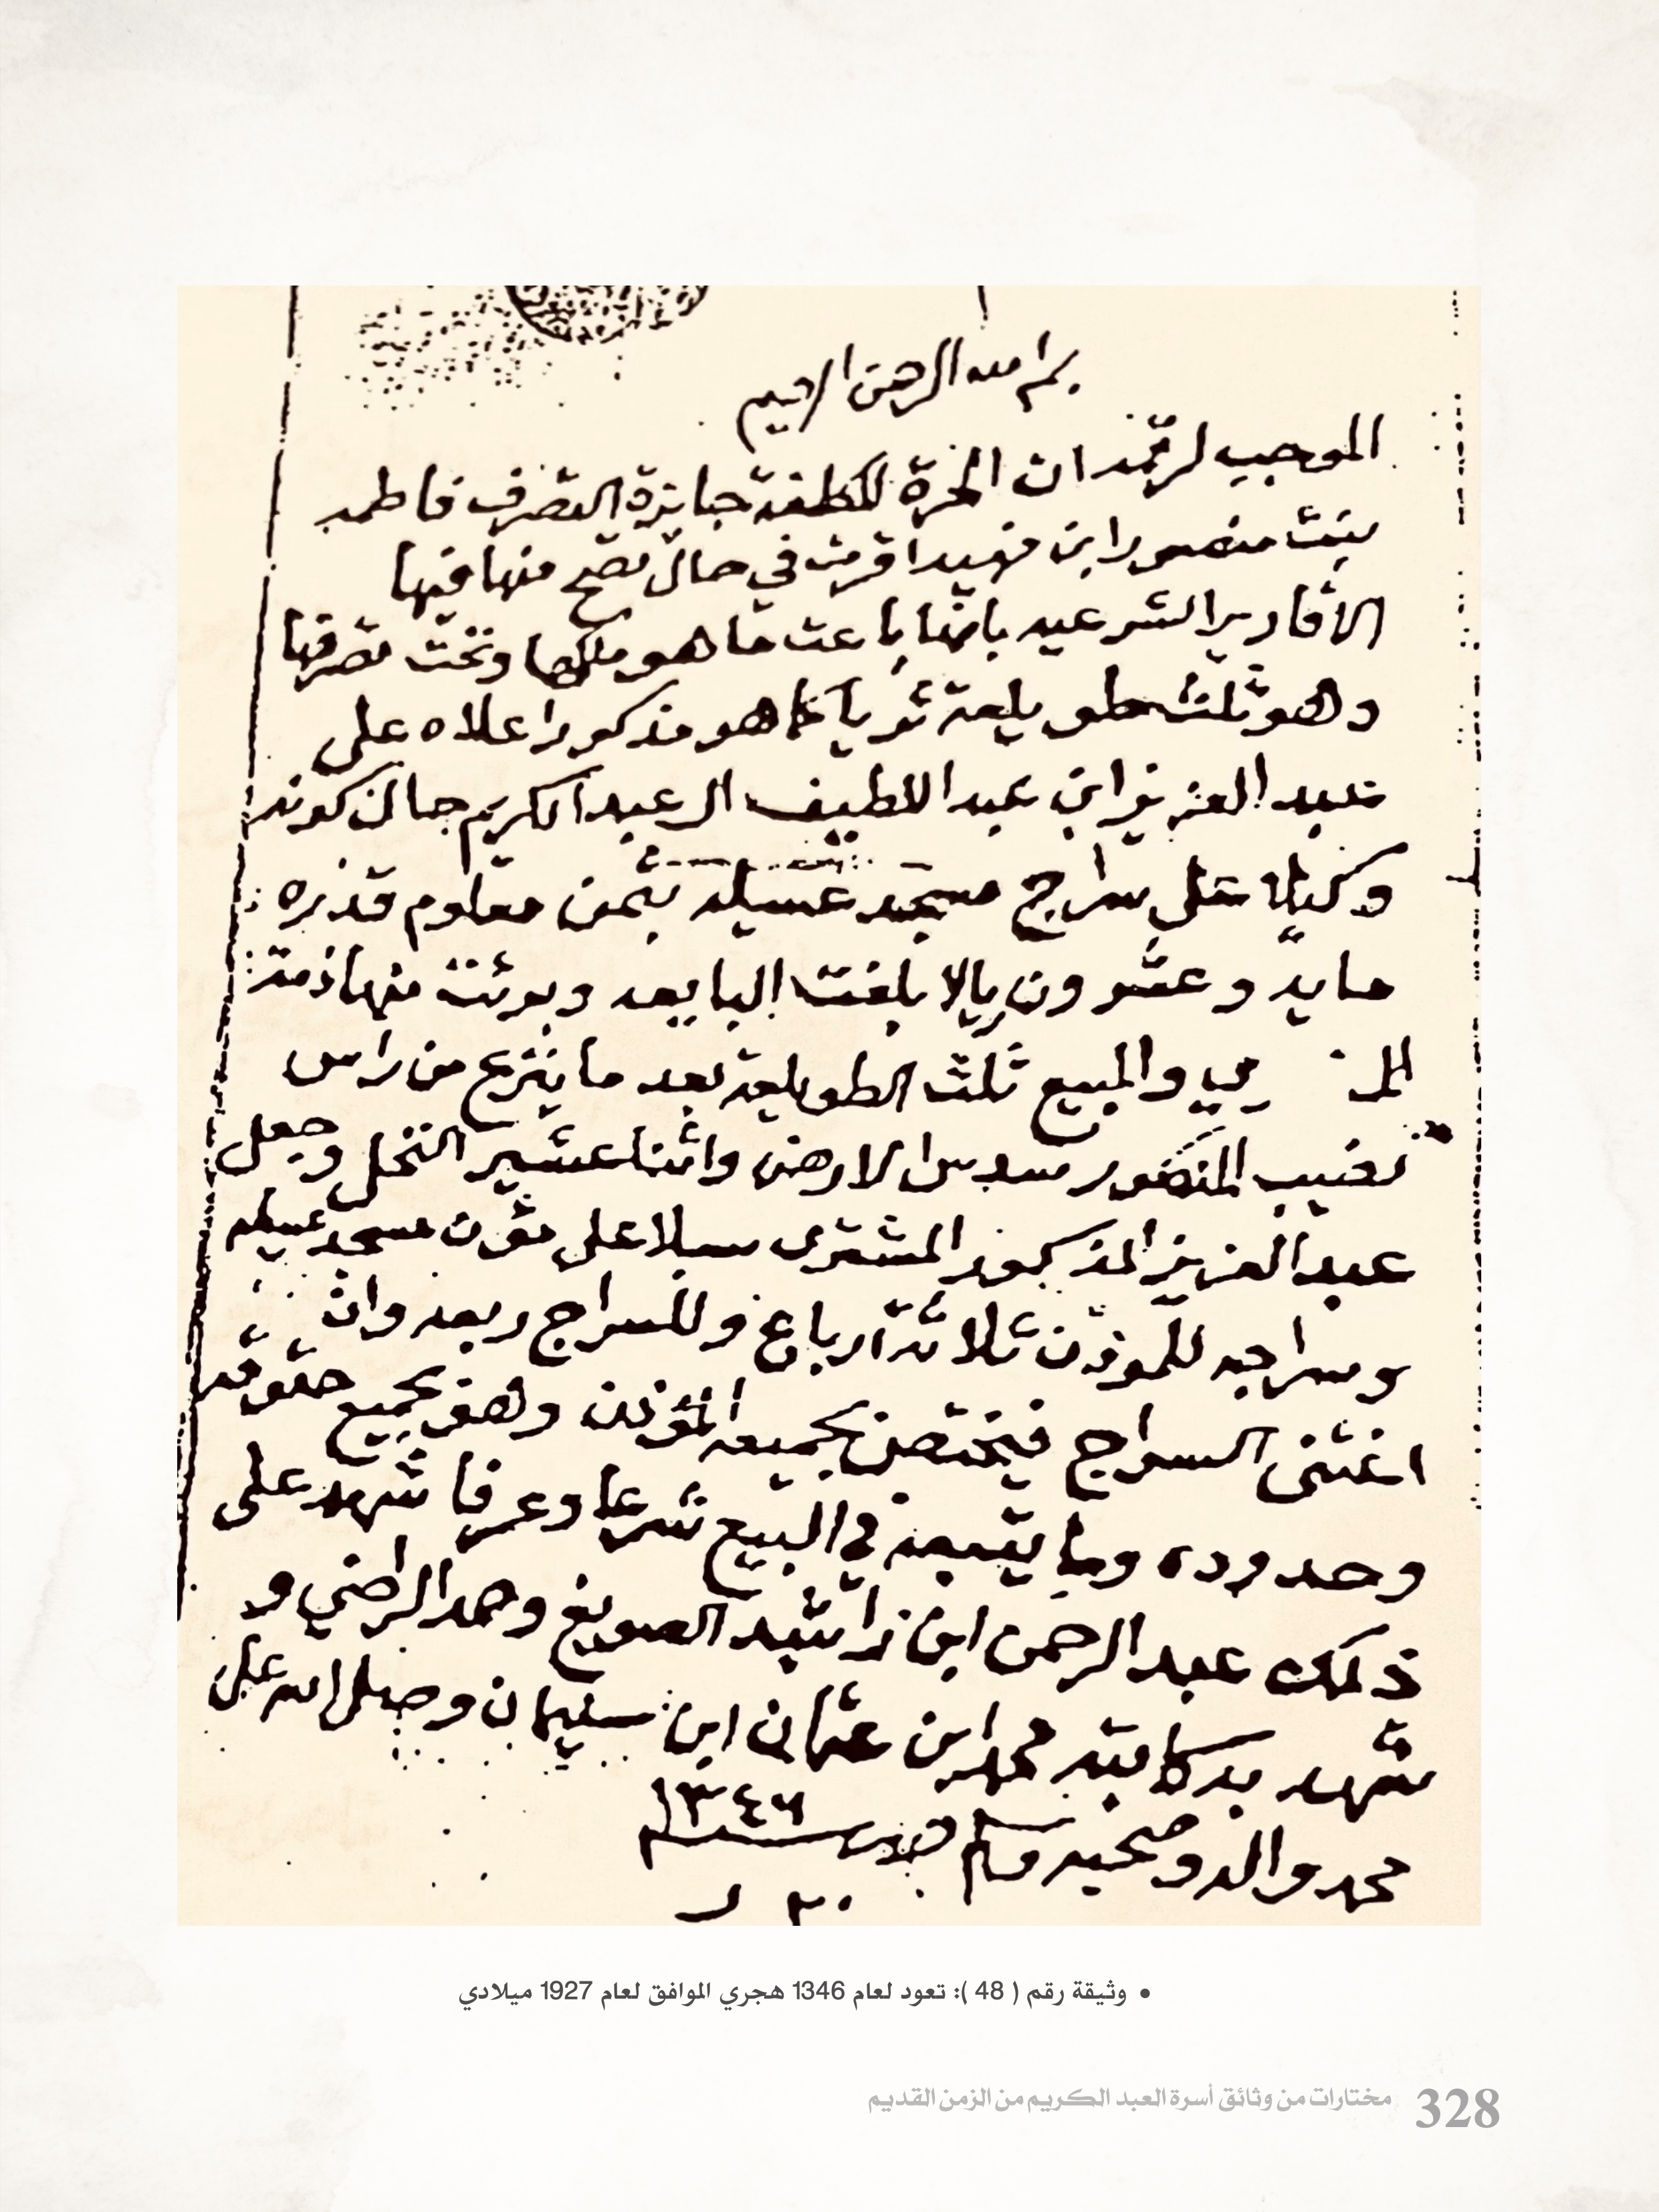 بسم الله الرحمن الرحيم
الموجب لرقمه ان الحرة المكلفة جايزة التصرف فاطمه
بنت منصور ابن فهيد اقرت في حال تصح منها فيها
الاقارير الشرعيه بانها باعت ما هو ملكها وتحت تصرفها
وهو ثلث طويلعة ثريا كما هو مذكور اعلاه على
عبد العزيز ابن عبد اللطيف ال عبد الكريم حال كونه
وكيلا على سراج مسجد عسيله بثمن معلوم قدره
مايه وعشرون ريالا بلغت البايعه وبرئت منها ذمة
ري والمبيع ثلث الطويلعة بعد ما ينزع من راس
نصيب المنصور سدس الارض واثنا عشير النخل وجعل
عبد العزيز المذكور المشتري سبلا على مؤذن مسجد عسيله
وسراجه للموذن ثلاثة ارباع وللسراج ربعه وان
اغتنى السراج فيختص بجميعه المؤذن وهو بجميع حقوقه
وحدوده وما يتبعه في البيع شرعا وعرفا شهد على
ذلك عبد الرحمن ابن راشد الصويغ وحمد الراضي و
شهد به كاتبه محمد ابن عثمان ابن سليمان وصلى الله على
محمد واله وصحبه وسلم ١٣٤٦
• وثيقة رقم ( 48 ): تعود لعام 1346 هجري الموافق لعام 1927 ميلادي
328 مختارات من وثائق أسرة العبد الكريم من الزمن القديم